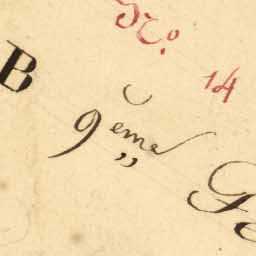 No. 14
B 9ème